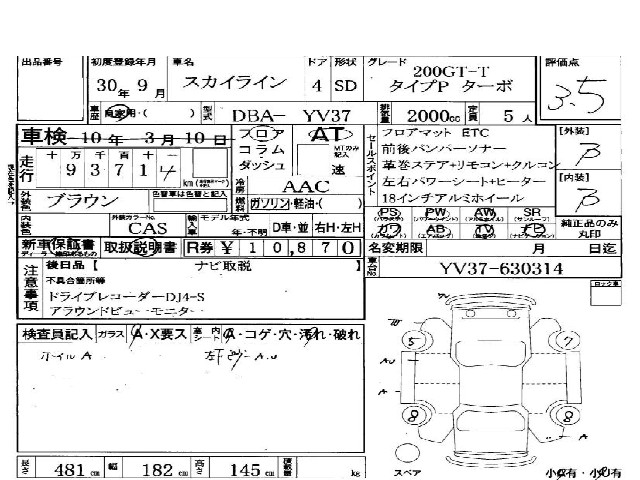 出品番号 初度登録年月 車名 ドア 形状 グレード 評価点
30年 9月 スカイライン 4 SD 200GT-T
タイプP ターボ 3.5
車歴 自家用・( ) 型式 DBA- YV37 排気量 2000cc 定員 5人
車検 10年 3月 10日 フロア AT フロアマット ETC [外装]
コラム MTのみ記入 前後バンパーソナー B
走行 十 万 千 百 十 一 ダッシュ 速 革巻ステア+リモコン+クルコン
9 3 7 1 4 km 冷房 AAC 左右パワーシート+ヒーター [内装]
外装色 ブラウン 色替車は色替と記入 燃料 ガソリン・軽油・( ) 18インチアルミホイール B
セールスポイント
内装色 外装カラーNo. CAS 輸入車 モデル年式 年・不明 D車・並 右H・左H PS PW AW SR 純正品のみ丸印
カワ AB TV ナビ
新車保証書 取扱説明書 R券 ¥ 10,870 名変期限 月 日迄
注意事項 後日品【 ナビ取説 】 車台No YV37-630314
不具合箇所等
ドライブレコーダーDJ4-S
アラウンドビューモニター
検査員記入 ガラス A・X要ス 車内シート A・コゲ・穴・汚れ・破れ
ホイルA A.U
長さ 481cm 幅 182cm 高さ 145cm 積載量 kg
スペア 小傷有・小凹有